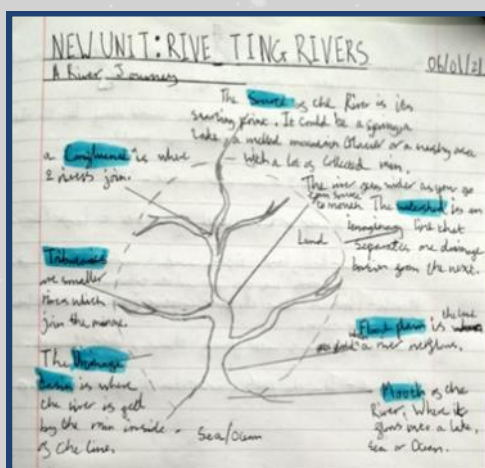 NEW UNIT: RIVE TING RIVERS
06/01/21
A River Journey
The Source of the River is its
starting point. It could be a spring, a
lake, a melted mountain Glacier or a marshy area
with a lot of collected rain.
a Confluence is where
2 rivers join.
The river gets wider as you go
from source
to mouth. The watershed is an
imaginary line that
separates one drainage
basin from the next.
Land
Tributaries
are smaller
rivers which
join the
The Drainage
basin is where
the river is
by the rain inside
of the line.
Flood plain is the land
a river
Mouth of the
River; Where it
over a lake,
Sea or Ocean.
Sea/Ocean